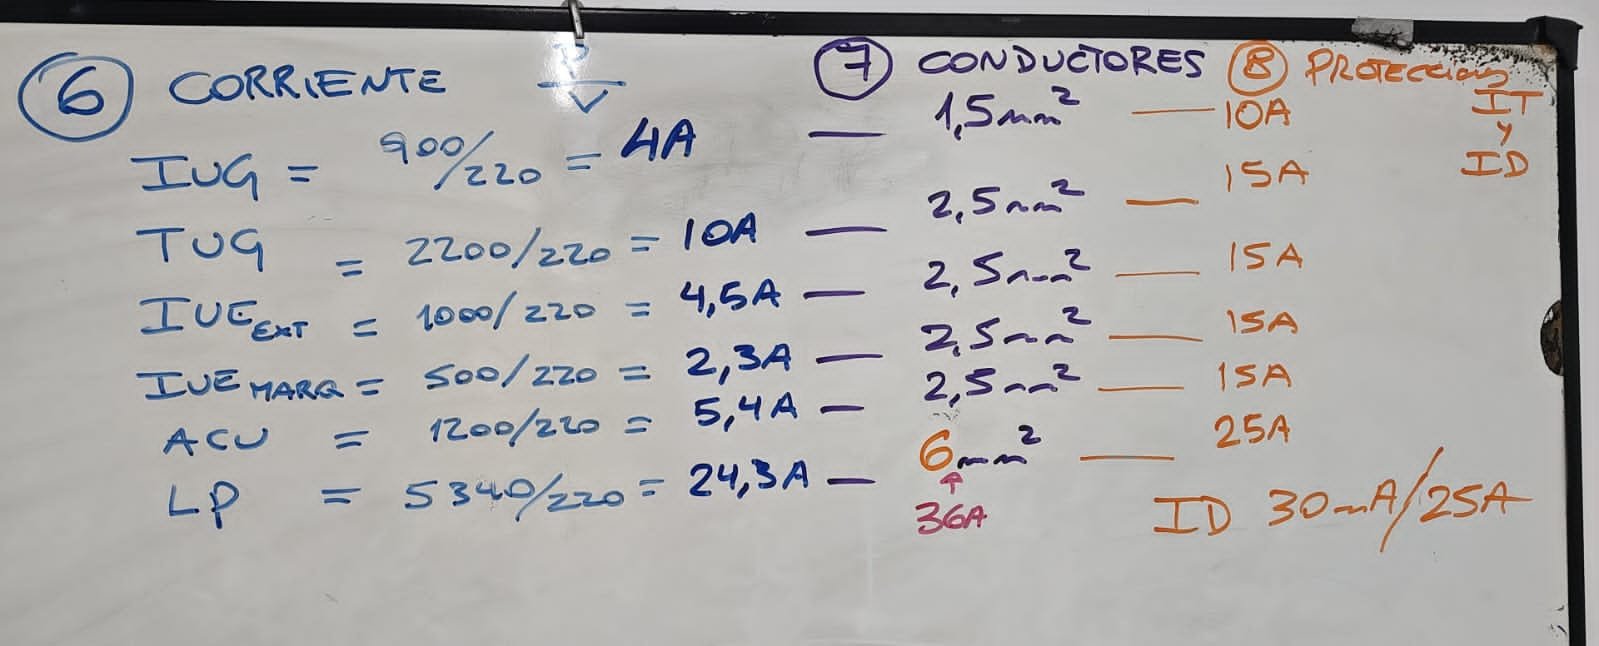 6 CORRIENTE P/V 7 CONDUCTORES 8 PROTECCIONES
IT
y
ID
IUG = 900/220 = 4A — 1,5mm² — 10A
TUG = 2200/220 = 10A — 2,5mm² — 15A
IUE EXT = 1000/220 = 4,5A — 2,5mm² — 15A
IUE MARQ = 500/220 = 2,3A — 2,5mm² — 15A
ACU = 1200/220 = 5,4A — 2,5mm² — 15A
LP = 5340/220 = 24,3A — 6mm² — 25A
↑
36A
ID 30mA/25A